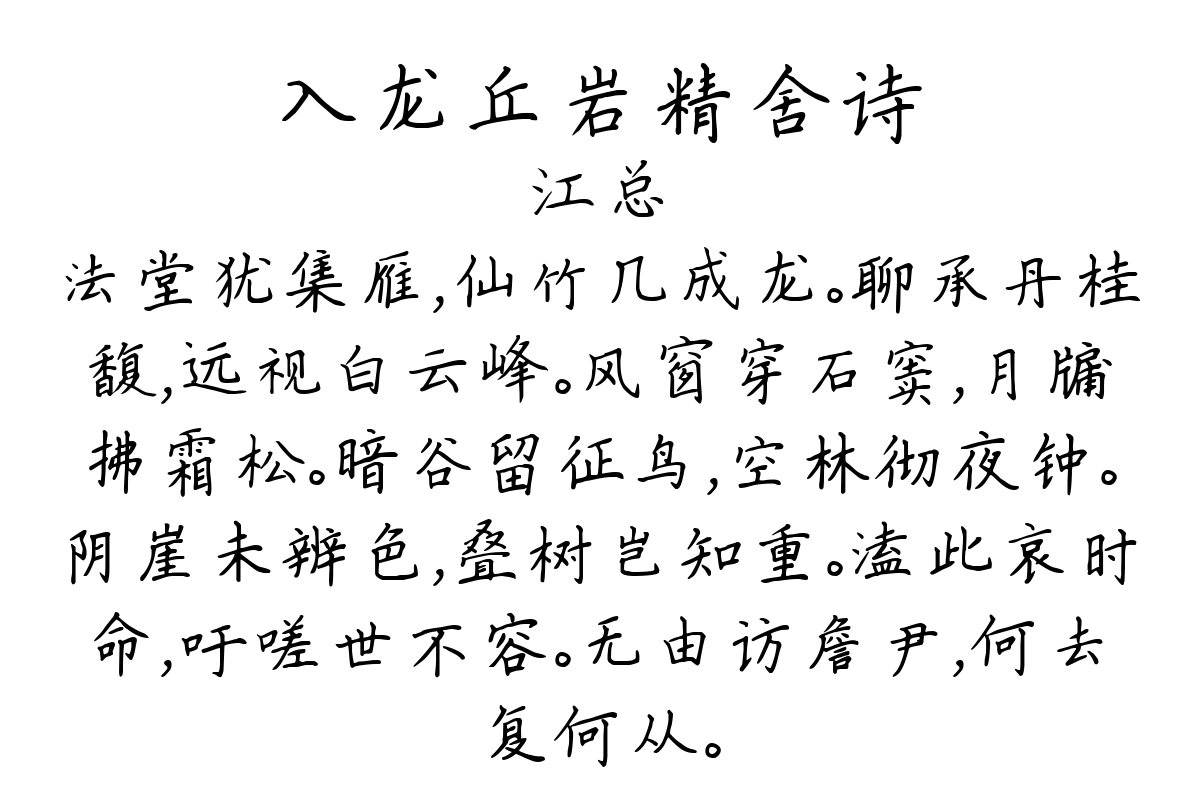 入龙丘岩精舍诗
江总
法堂犹集雁,仙竹几成龙。聊承丹桂
馥,远视白云峰。风窗穿石窦,月牖
拂霜松。暗谷留征鸟,空林彻夜钟。
阴崖未辨色,叠树岂知重。溘此哀时
命,吁嗟世不容。无由访詹尹,何去
复何从。